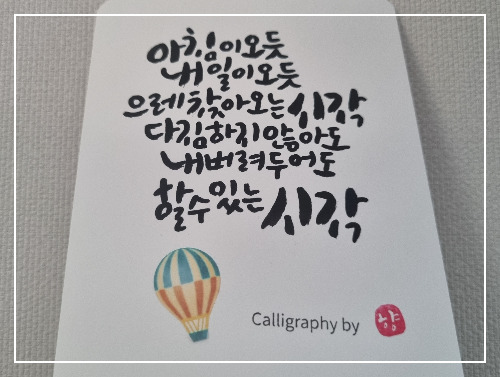 아침이오듯
내일이오듯
으레찾아오는시작
다짐하지않아도
내버려두어도
할수있는시작
Calligraphy by 향